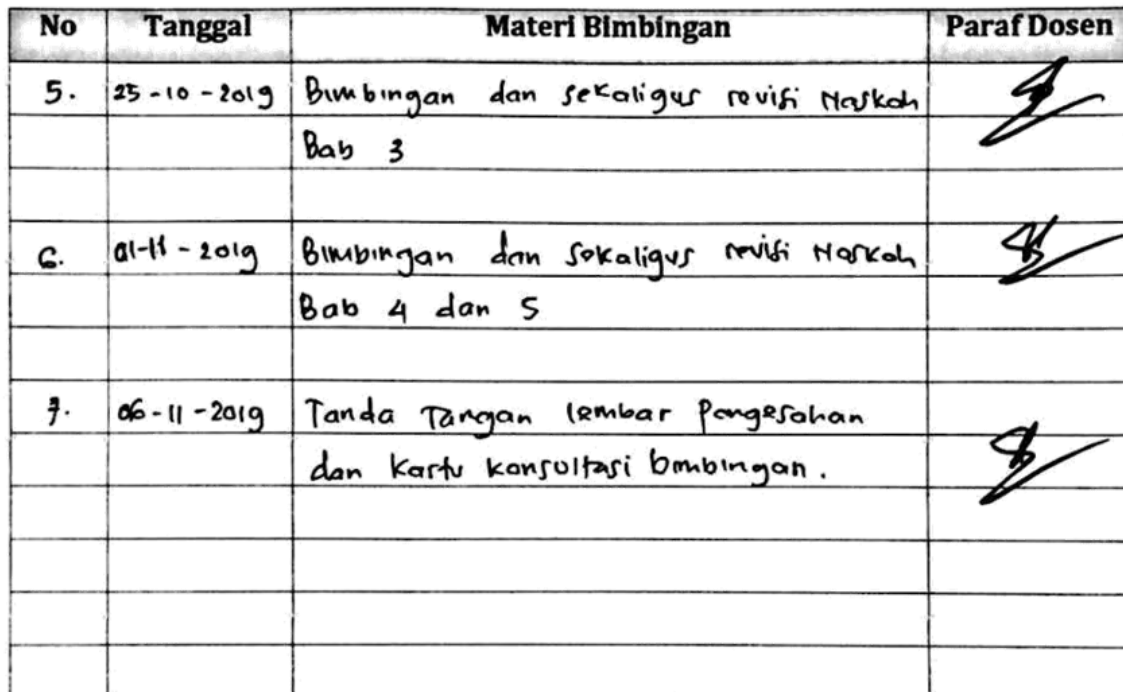 No Tanggal Materi Bimbingan Paraf Dosen
5. 25-10-2019 Bimbingan dan sekaligus revisi Naskah
Bab 3
6. 01-11-2019 Bimbingan dan sekaligus revisi Naskah
Bab 4 dan 5
7. 06-11-2019 Tanda Tangan lembar Pengesahan
dan Kartu konsultasi bimbingan.